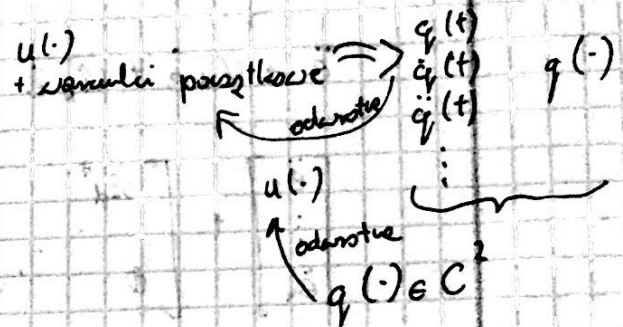 u(·)
+ warunki początkowe ⇒ q(t)
q̇(t) q(·)
q̈(t)
odwrotne
⋮
u(·)
odwrotne
q(·) ∈ C²